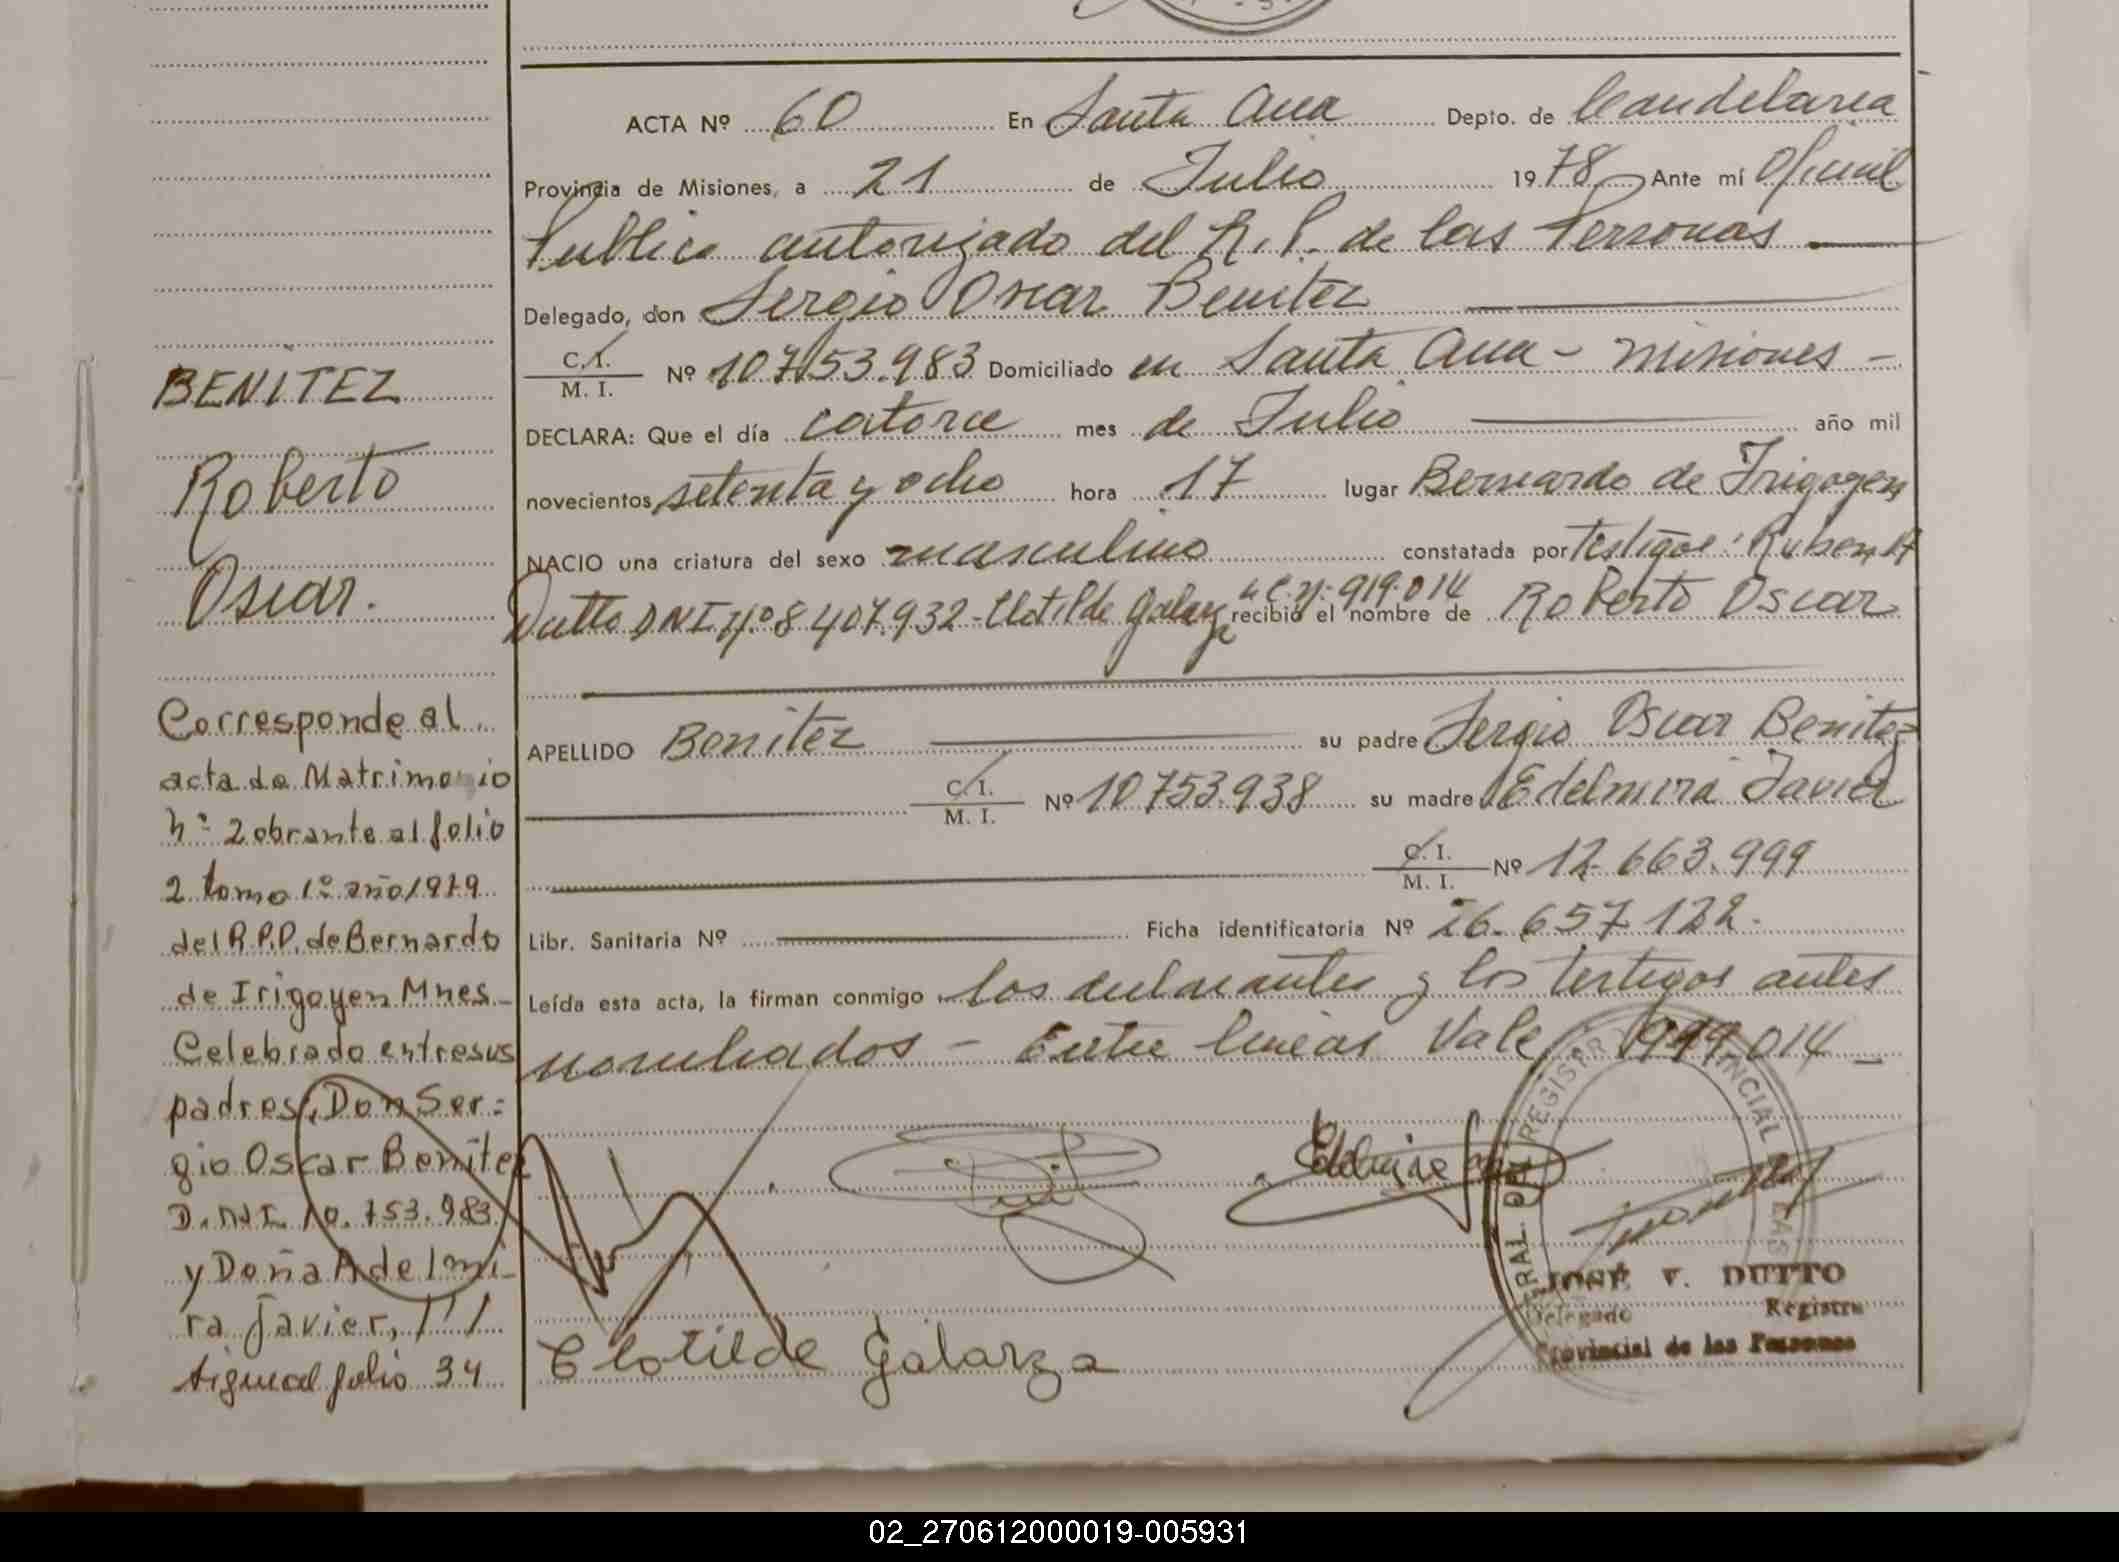 BENITEZ
Roberto
Oscar.
Corresponde al
acta de Matrimonio
nº 2 obrante al folio
2 tomo 1º año 1979
del R.P.P. de Bernardo
de Irigoyen Mnes
Celebrado entre sus
padres, Don Ser=
gio Oscar Benitez
D.N.I. 10.753.983
y Doña Adelmi-
ra Javier, ///
tigual folio 34
ACTA Nº 60 En Santa Ana Depto. de Candelaria
Provincia de Misiones, a 21 de Julio 1978 Ante mí Oficial
Publico autorizado del R.P. de las Personas
Delegado, don Sergio Oscar Benitez
C.I.
M.I. Nº 10.753.983 Domiciliado en Santa Ana - Misiones -
DECLARA: Que el día catorce mes de Julio año mil
novecientos setenta y ocho hora 17 lugar Bernardo de Irigoyen
NACIO una criatura del sexo masculino constatada por Testigos: Ruben A
Dutto DNI Nº 8407.932 - Clotilde Galarza L.C. Nº 919.014 recibió el nombre de Roberto Oscar
APELLIDO Benitez su padre Sergio Oscar Benitez
C.I.
M.I. Nº 10753.938 su madre Edelmira Javier
C.I.
M.I. Nº 12.663.999
Libr. Sanitaria Nº Ficha identificatoria Nº 26.657.122.
Leída esta acta, la firman conmigo los declarantes y los testigos antes
nombrados - Entre lineas Vale: 919.014 -
Clotilde Galarza
JOSE V. DUTTO
Delegado Registro
Provincial de las Personas
02_270612000019-005931